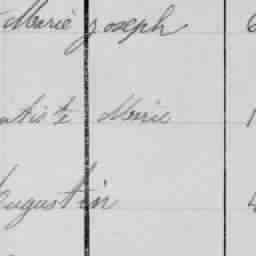 Marie joseph 6
tiste Marie 1
Augustin 4